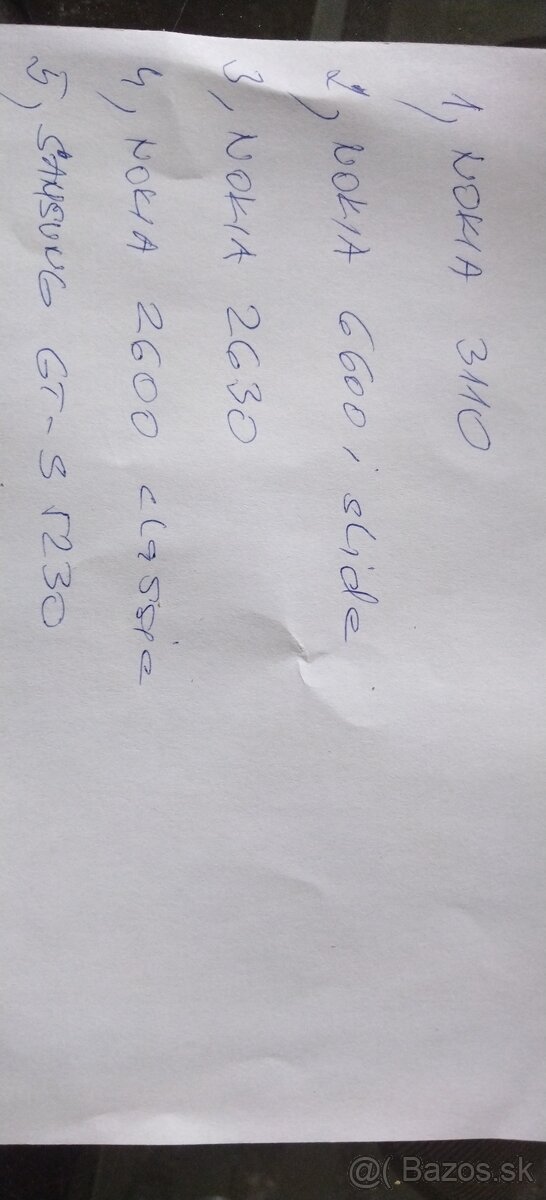 1, NOKIA 3110
2, NOKIA 6600i slide
3, NOKIA 2630
4, NOKIA 2600 classic
5, SAMSUNG GT-S5230
@( Bazos.sk